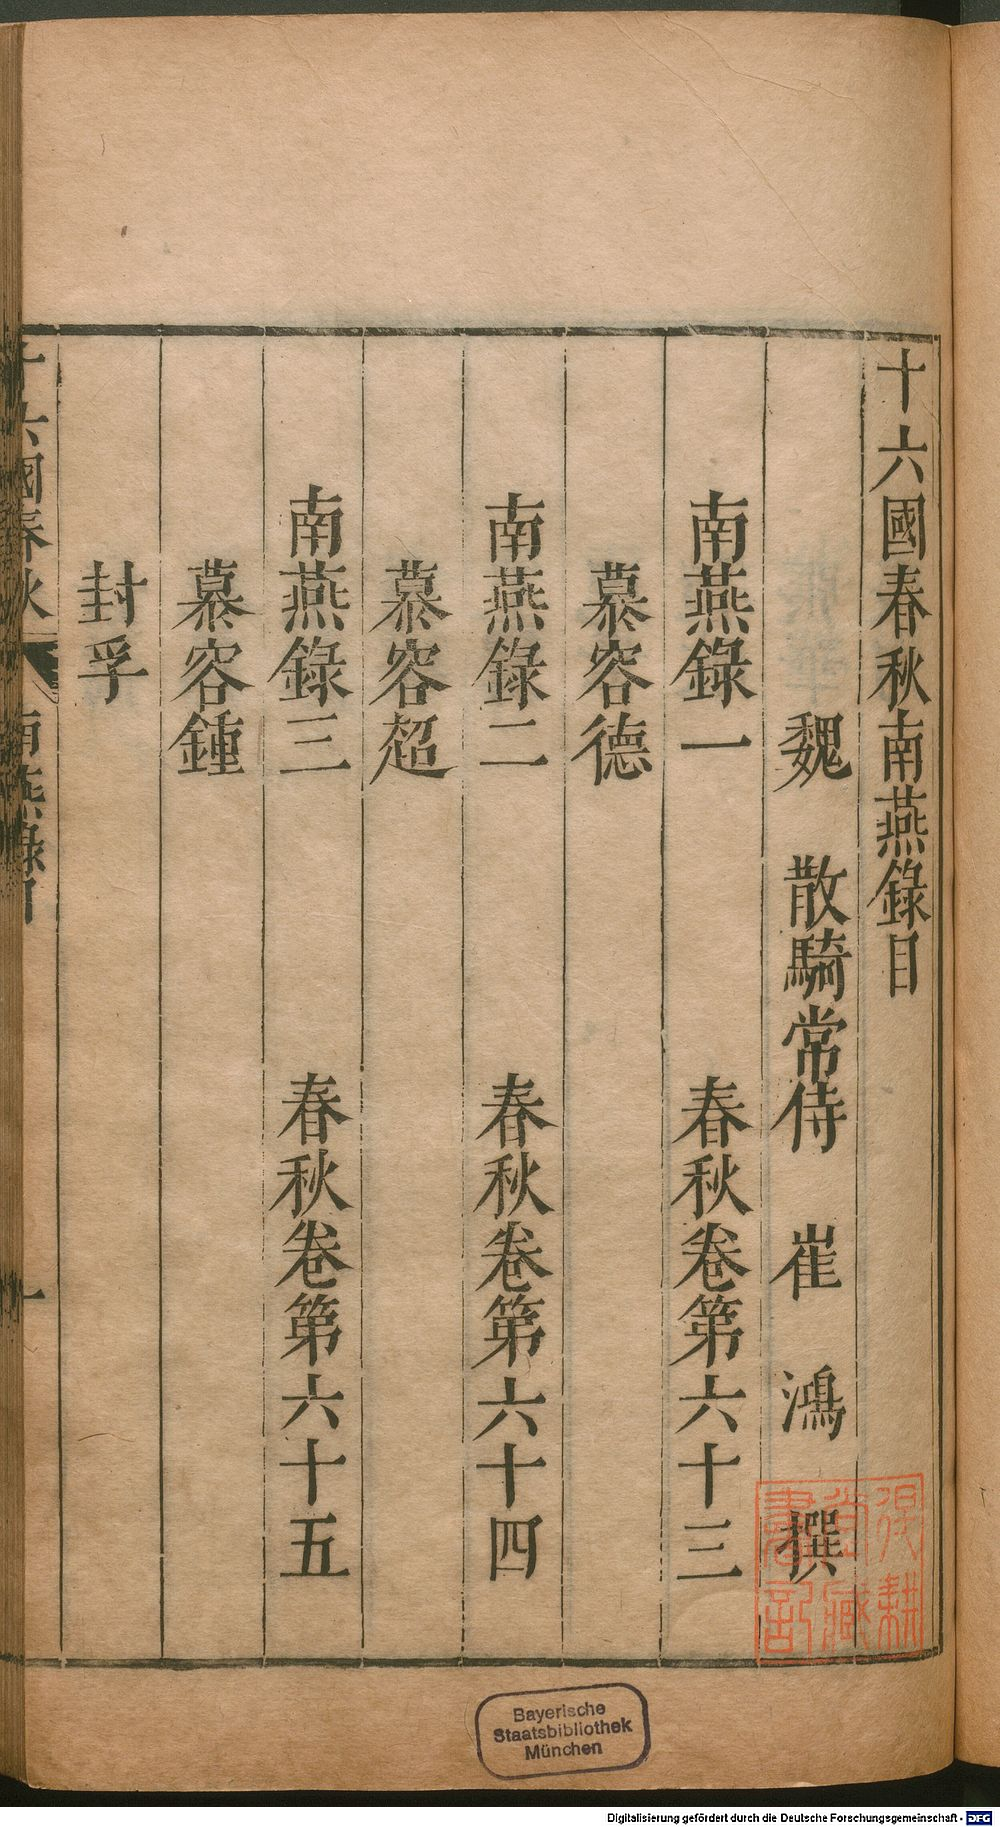 十六國春秋南燕錄目
魏 散騎常侍 崔 鴻 撰
南燕錄一 春秋卷第六十三
慕容德
南燕錄二 春秋卷第六十四
慕容超
南燕錄三 春秋卷第六十五
慕容鍾
封孚
十六國春秋 南燕錄目 一
Bayerische
Staatsbibliothek
München
Digitalisierung gefördert durch die Deutsche Forschungsgemeinschaft - DFG